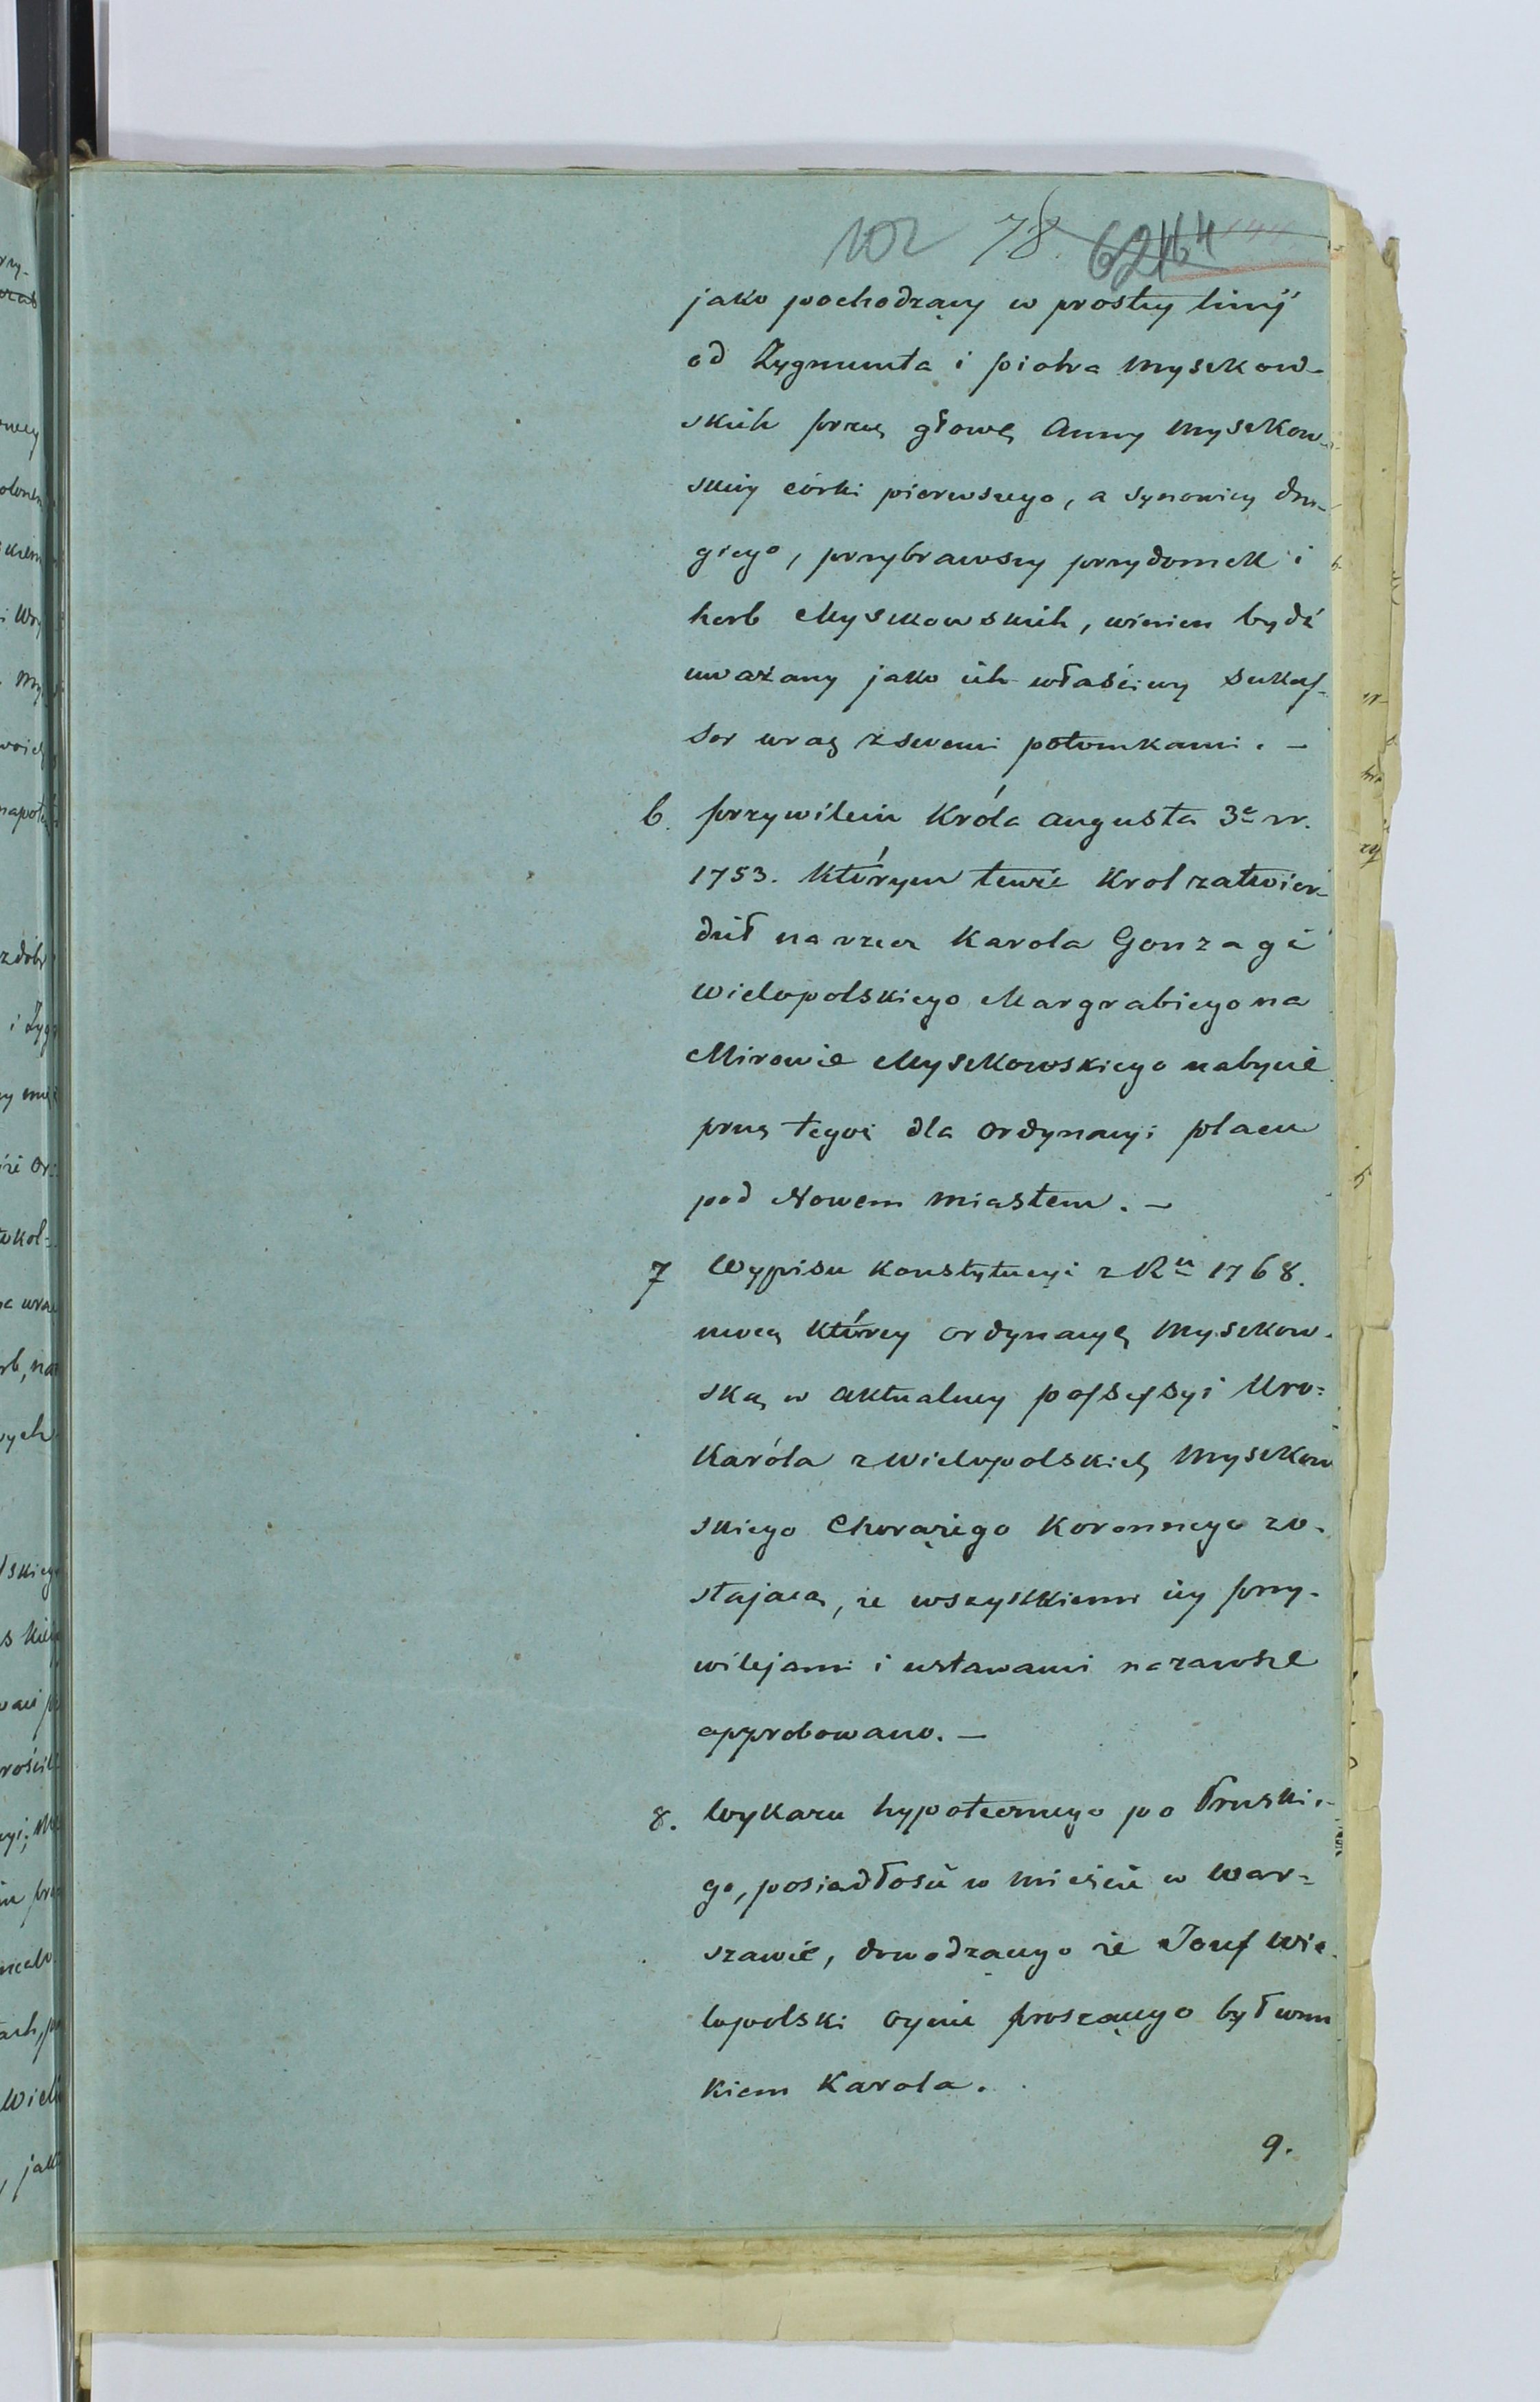 102 78. 62
jako pochodzący w prostey linij
od Zygmunta i piotra Myszkow-
skich przez głowę Anny Myszkow-
skiey córki pierwszego, a synowicy dru-
giego, przybrawszy przydomek i
herb Myszkowskich, winien bydź
uważany jako ich właściwy sukces-
sor wraz z swemi potomkami. —
6. przywileiu Króla Augusta 3º w r.
1753. którym tenże Krol zatwier-
dził na rzecz Karola Gonzagi
Wielopolskiego Margrabiego na
Mirowie Myszkowskiego nabycie
przez tegoż dla ordynacyi placu
pod Nowem Miastem. —
7 Wypisu Konstytucyi z Ru 1768.
mocą którey ordynacyę Myszkow-
ską w aktualney possessyi Uro=
Karóla z Wielopolskich Myszkow
skiego Chorążego Koronnego zo-
stającą, ze wszystkiemi iey przy-
wilejami i ustawami nazawsze
approbowano. —
8. Wykazu hypotecznego po Pruskie-
go, posiadłości w mieście w War=
szawie, dowodzącego że Jozef Wie-
lopolski oyciec proszącego był wnu
kiem Karola.
9.